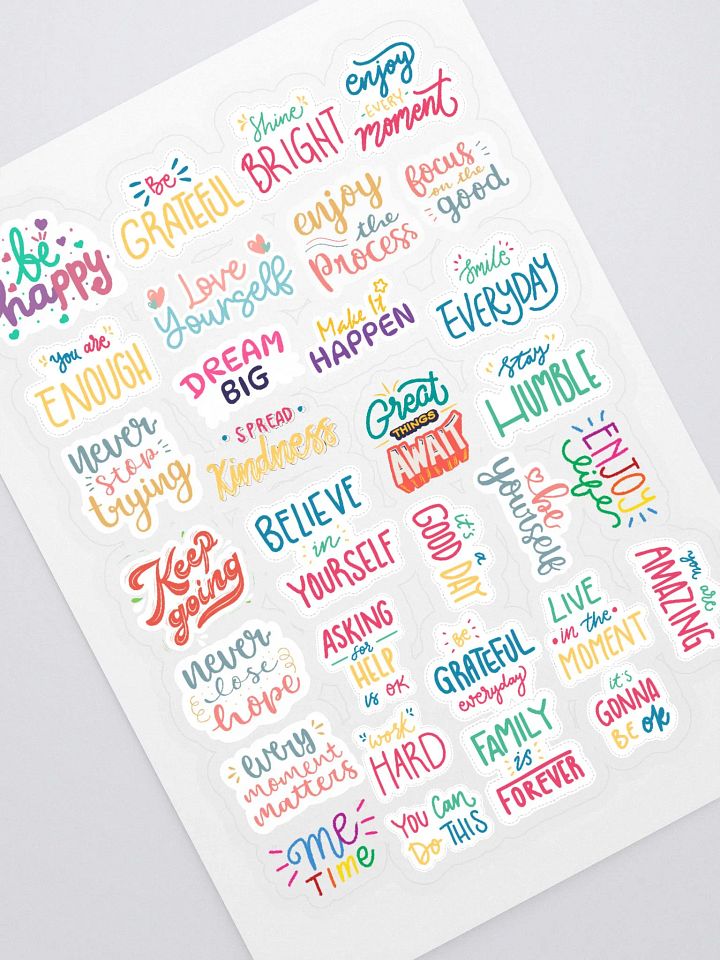 enjoy
EVERY
moment
Shine
BRIGHT
Be
GRATEFUL
be
happy
focus
on the
good
enjoy
the
Process
Love
Yourself
Smile
EVERYDAY
Make It
HAPPEN
DREAM
BIG
you are
ENOUGH
stay
HUMBLE
Great
THINGS
AWAIT
SPREAD
Kindness
never
stop
trying
ENJOY
life
be
yourself
it's a
GOOD DAY
BELIEVE
in
YOURSELF
Keep
going
you are
AMAZING
LIVE
in the
MOMENT
BE
GRATEFUL
everyday
ASKING
for
HELP
is OK
never
lose
hope
it's
GONNA
BE ok
FAMILY
is
FOREVER
"work"
HARD
every
moment
matters
YOU Can
Do THIS
me
TIme